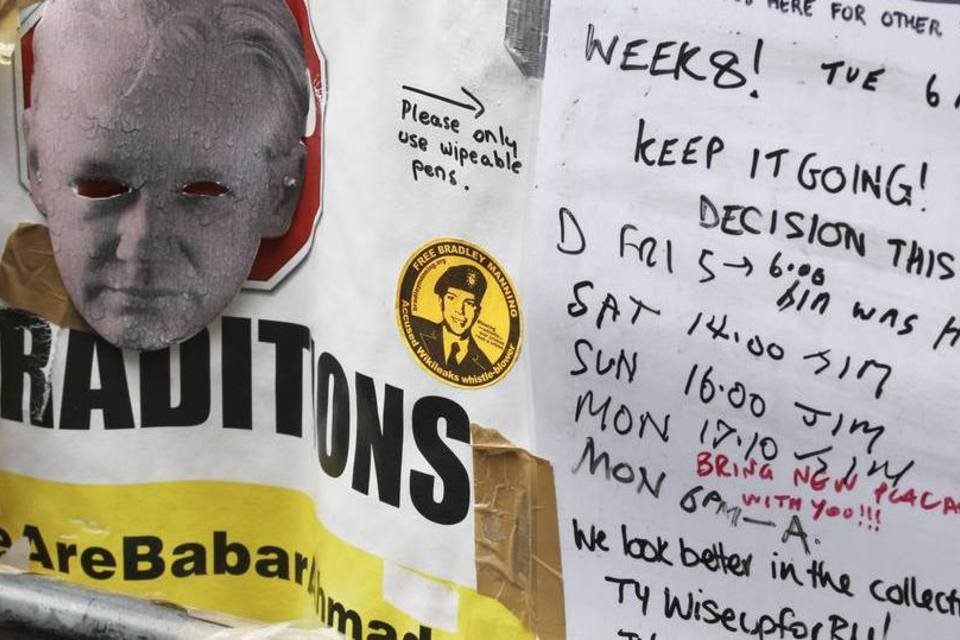 HERE FOR OTHER
WEEK8! TUE 6
KEEP IT GOING!
DECISION THIS
D FRI 5→ 6:00
WAS
SAT 14.00 JIM
SUN 16.00 JIM
MON 17.10 JIM
BRING NEW PLACA
WITH YOU!!!
MON 6PM — A.
We look better in the collect
TY WiseupforBM!
Please only
use wipeable
pens.
FREE BRADLEY MANNING
bradleymanning.org
Accused Wikileaks whistle-blower
RADITIONS
eAreBabarAhmad